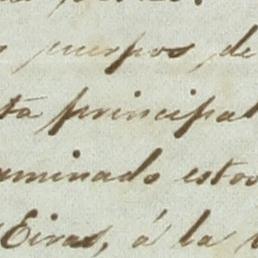 cuerpos de
ta principal
uminado estos
Eiras, á la